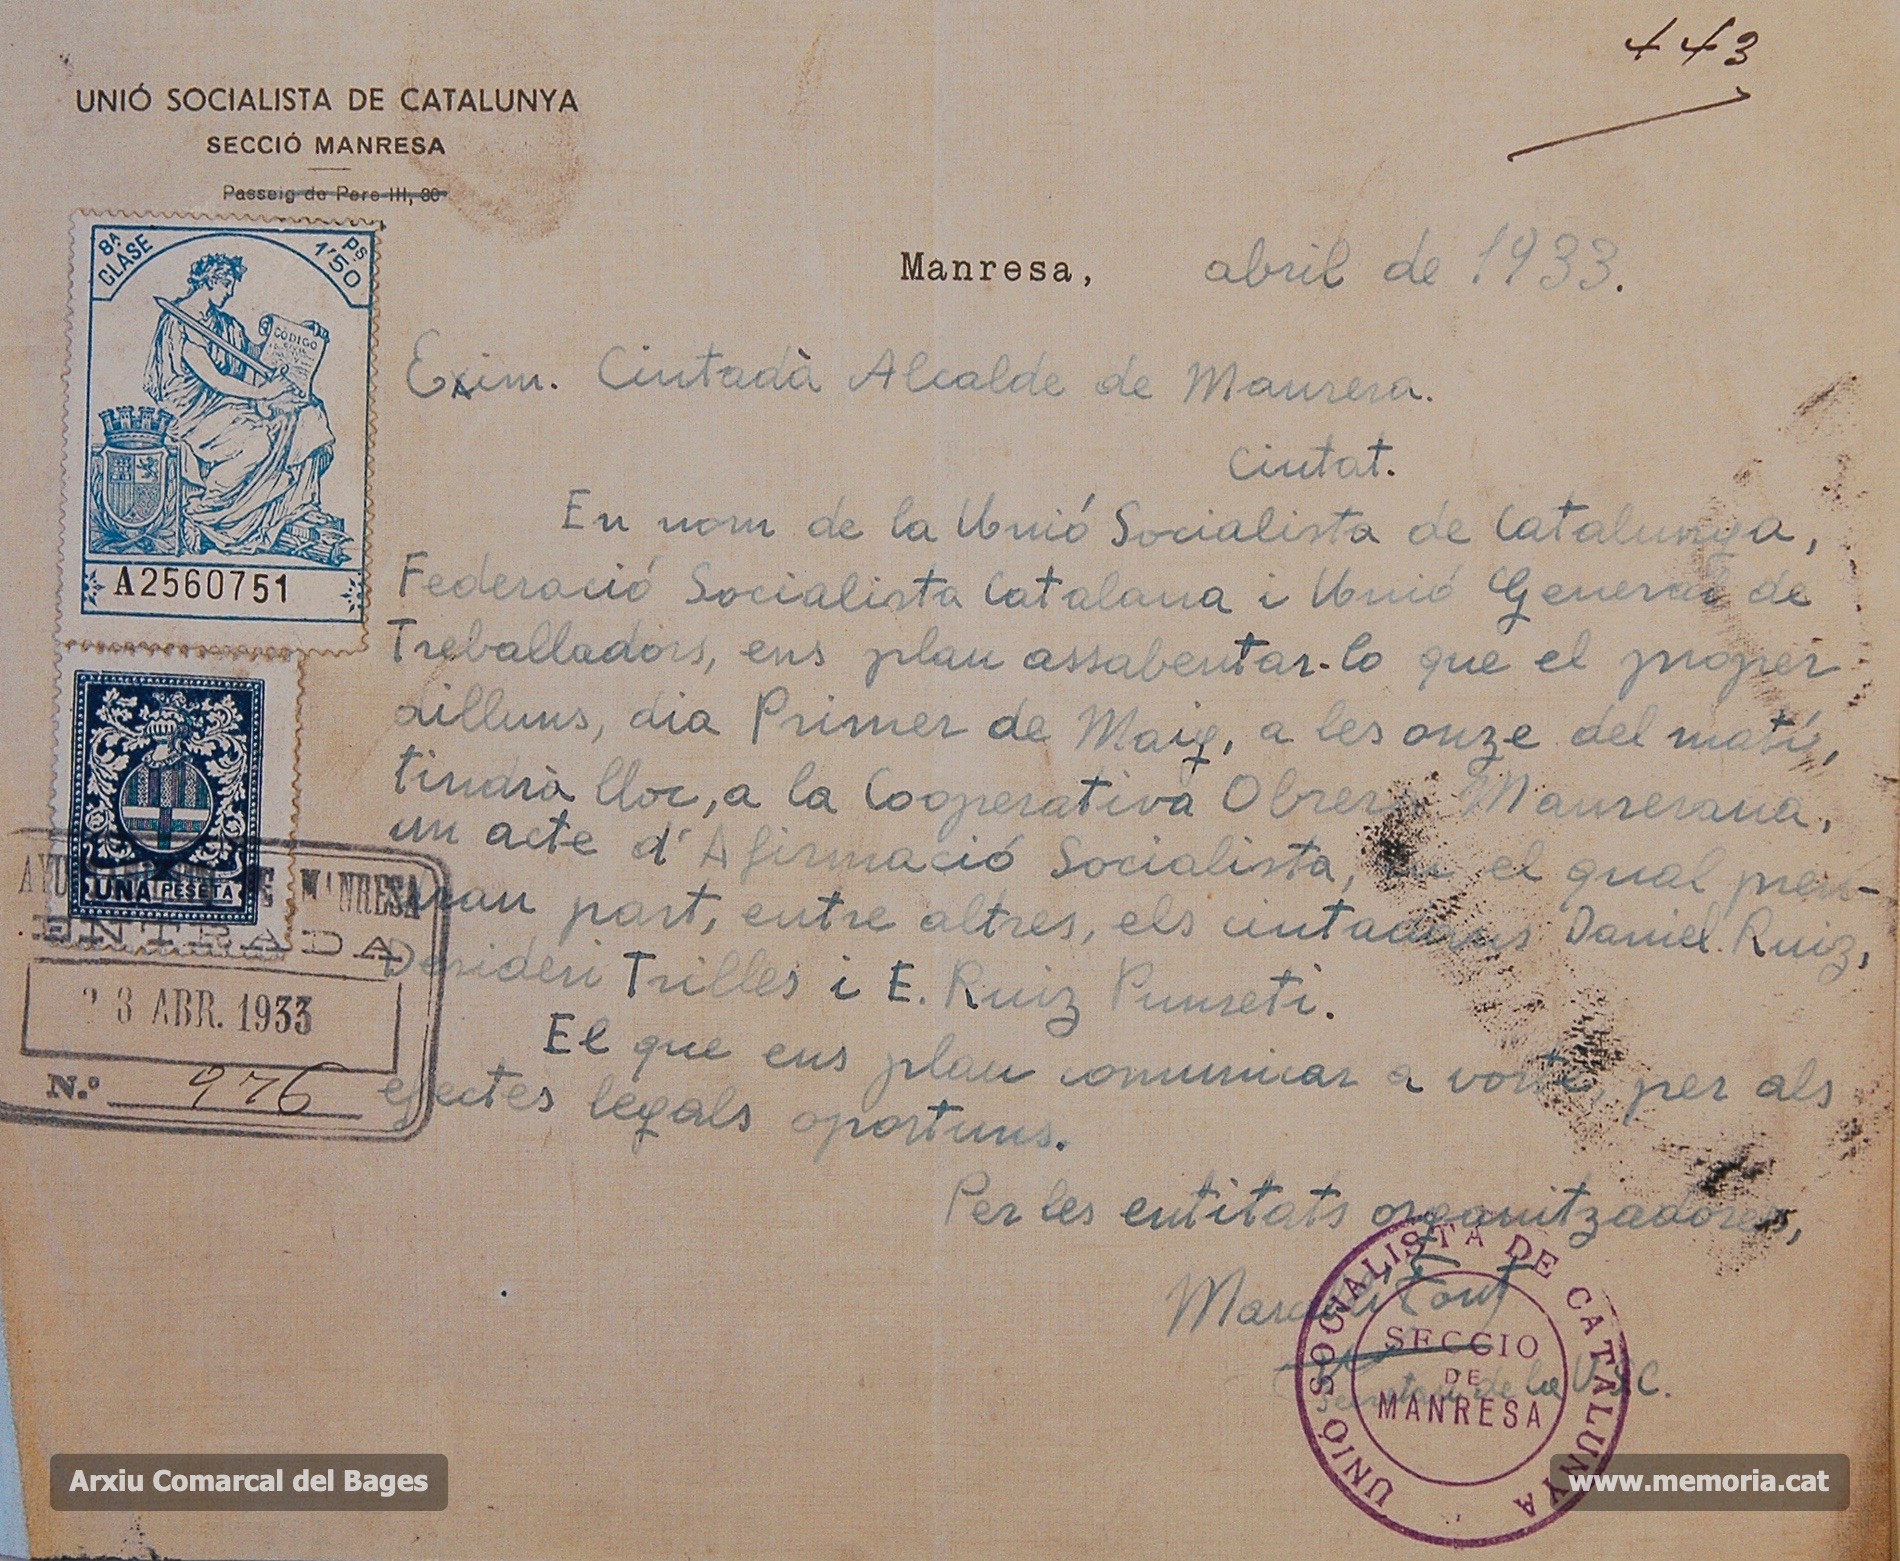 443
UNIÓ SOCIALISTA DE CATALUNYA
SECCIÓ MANRESA
Passeig de Pere III, 30
8ª CLASE
Pˢ 1'50
CÓDIGO
A2560751
Manresa, abril de 1933.
Exim. Ciutadà Alcalde de Manresa.
Ciutat.
En nom de la Unió Socialista de Catalunya,
Federació Socialista Catalana i Unió General de
Treballadors, ens plau assabentar-lo que el proper
dilluns, dia Primer de Maig, a les onze del matí,
tindrà lloc, a la Cooperativa Obrera Manresana,
un acte d'Afirmació Socialista, en el qual pren-
dran part, entre altres, els ciutadans Daniel Ruiz,
Desideri Trilles i E. Ruiz Punseti.
El que ens plau comunicar a vostè, per als
efectes legals oportuns.
Per les entitats organitzadores,
Secretari de la U.S.C.
UNA PESETA
AYUNTAMIENTO DE MANRESA
ENTRADA
23 ABR. 1933
N.º 976
UNIÓ SOCIALISTA DE CATALUNYA
SECCIO
DE
MANRESA
Arxiu Comarcal del Bages
www.memoria.cat